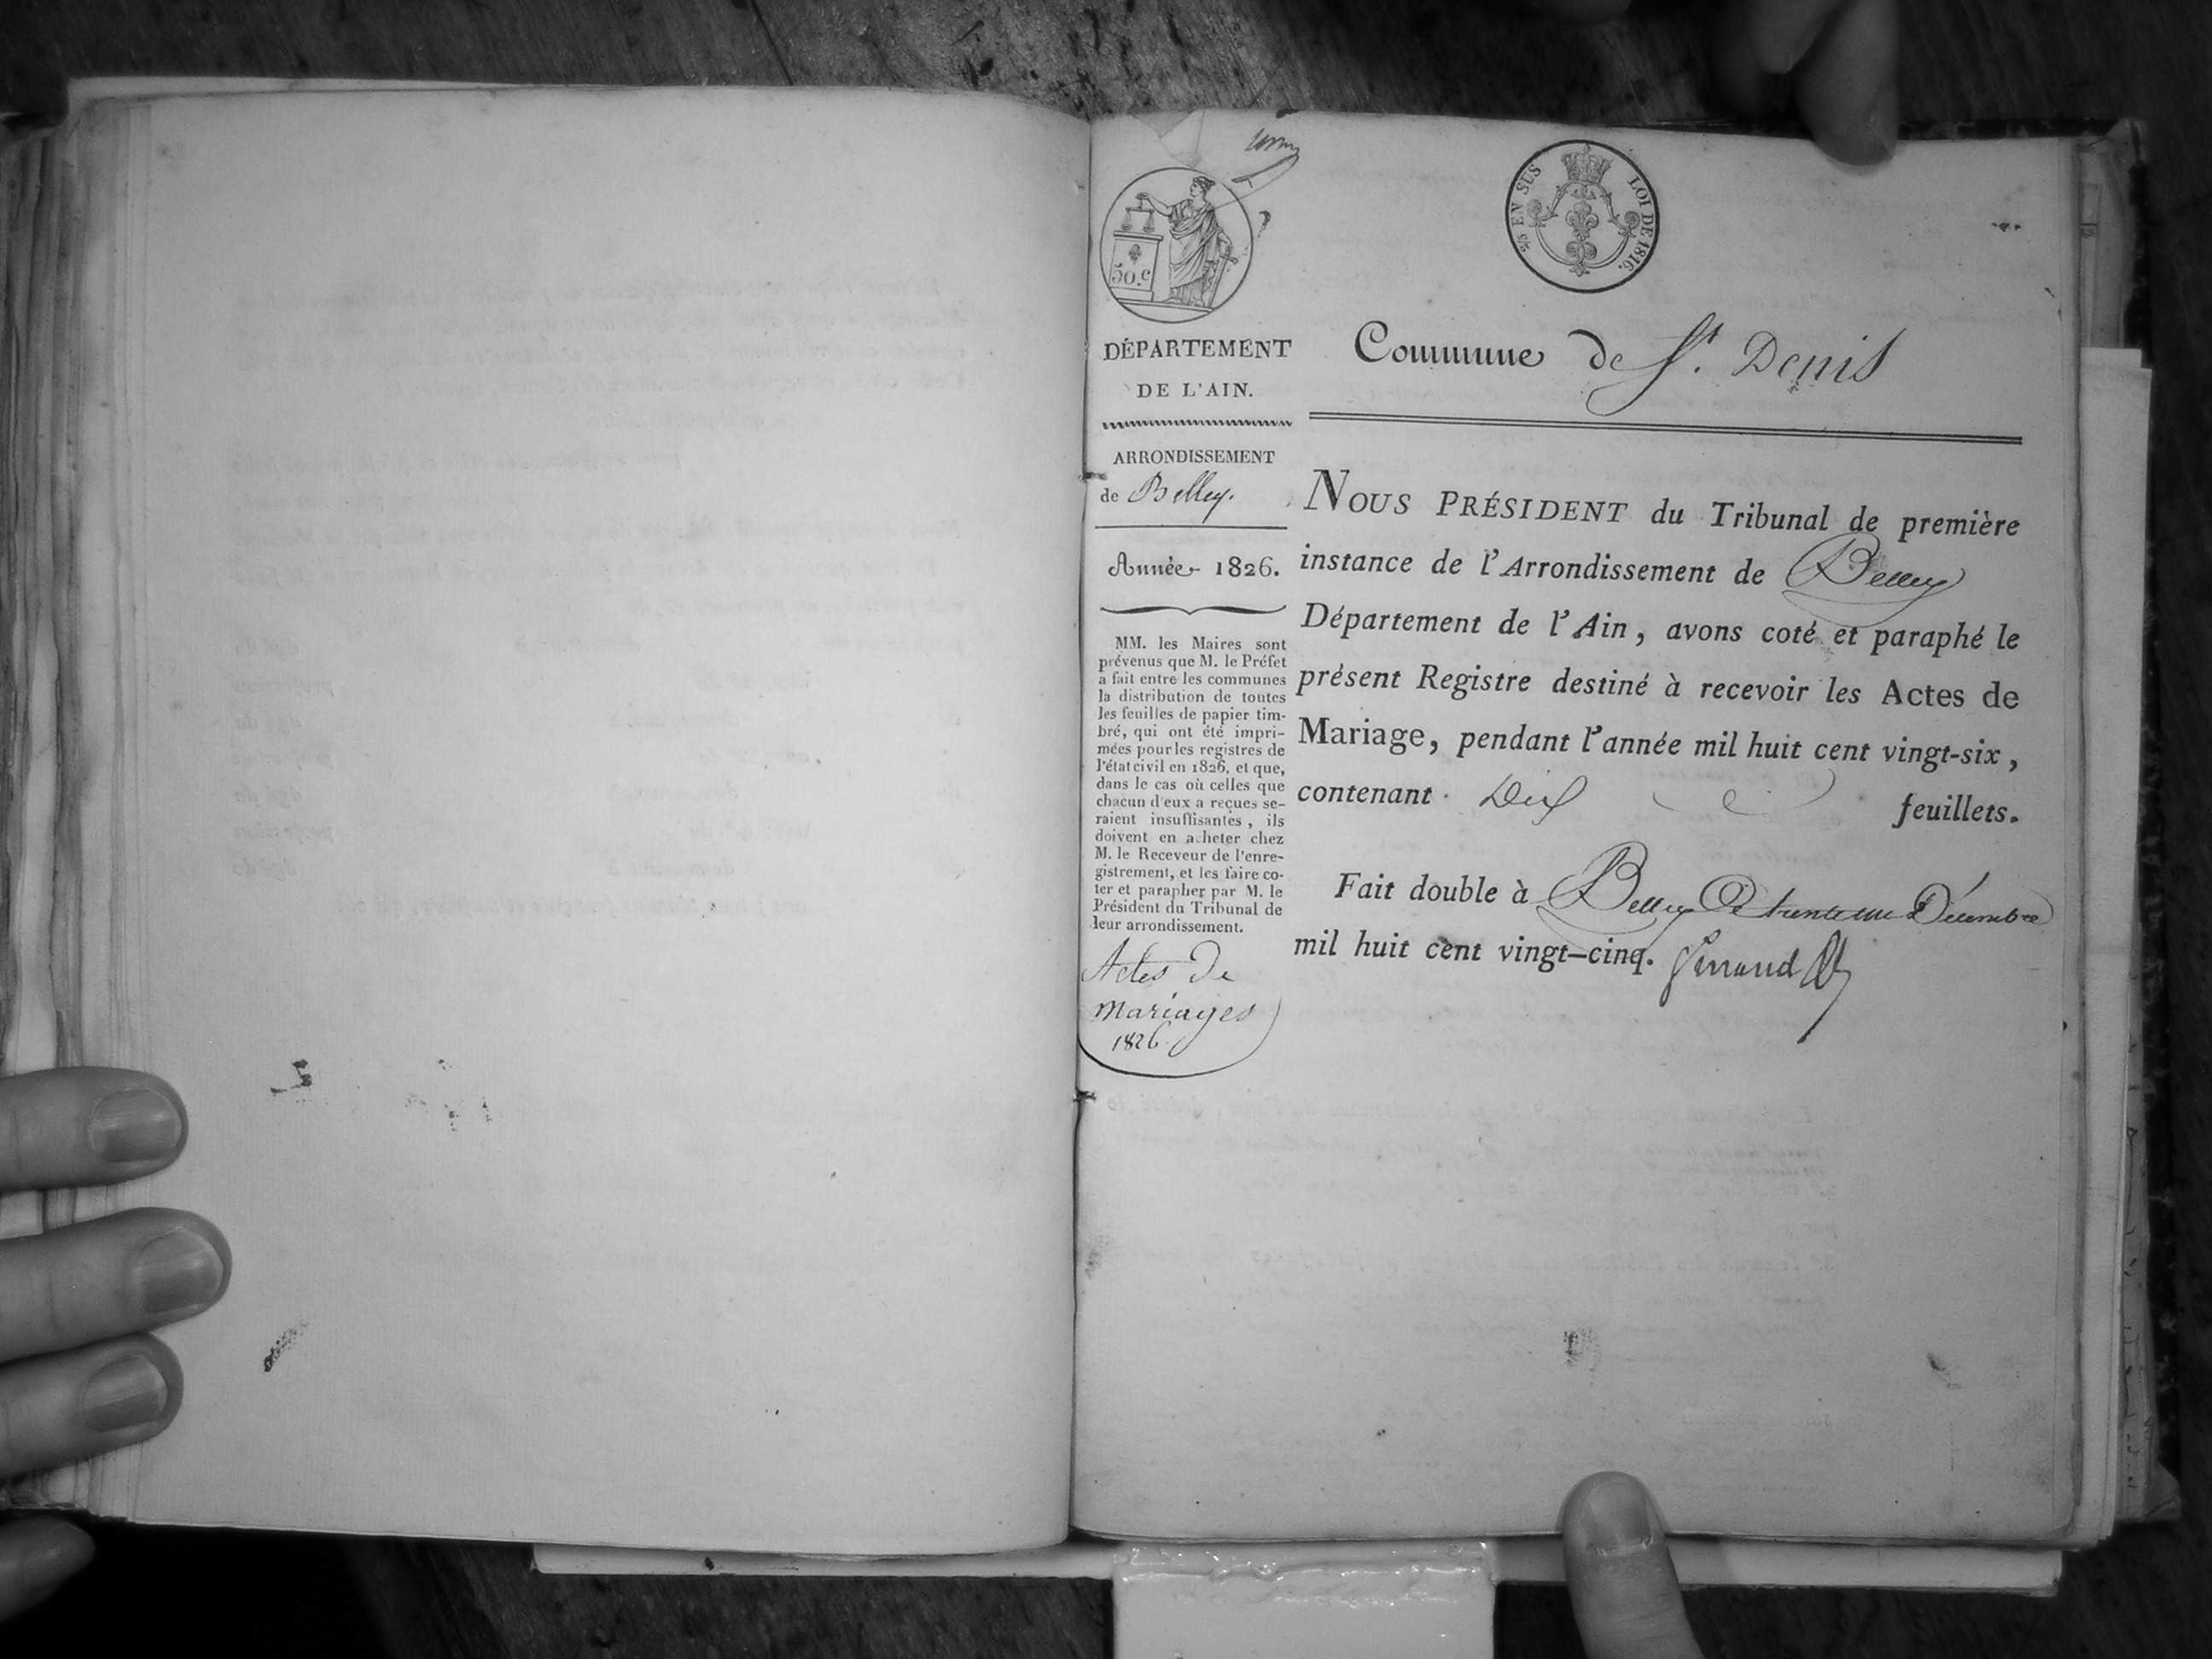 50.c
EN SUS
LOI DE 1816.
DÉPARTEMENT
DE L'AIN.
ARRONDISSEMENT
de Belley.
Année 1826.
MM. les Maires sont
prévenus que M. le Préfet
a fait entre les communes
la distribution de toutes
les feuilles de papier tim-
bré, qui ont été impri-
mées pour les registres de
l'état civil en 1826, et que,
dans le cas où celles que
chacun d'eux a reçues se-
raient insuffisantes, ils
doivent en acheter chez
M. le Receveur de l'enre-
gistrement, et les faire co-
ter et parapher par M. le
Président du Tribunal de
leur arrondissement.
Actes De
mariages
1826.
Commune de St. Denis
NOUS PRÉSIDENT du Tribunal de première
instance de l'Arrondissement de Belley
Département de l'Ain, avons coté et paraphé le
présent Registre destiné à recevoir les Actes de
Mariage, pendant l'année mil huit cent vingt-six,
contenant Dix feuillets.
Fait double à Belley Le trente un Décembre
mil huit cent vingt-cinq.